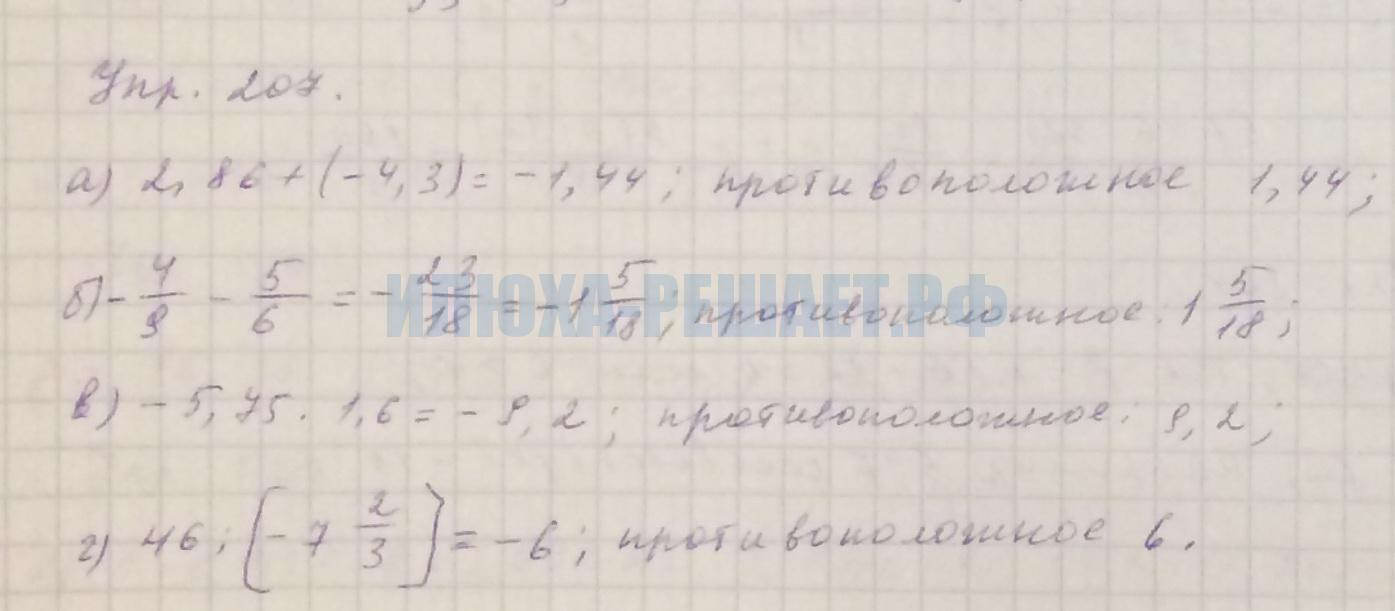 Упр. 207.
а) 2,86 + (-4,3) = -1,44; противоположное 1,44;
б) - 4/9 - 5/6 = - 23/18 = -1 5/18; противоположное: 1 5/18;
ИЛЮХА-РЕШАЕТ.РФ
в) -5,75 · 1,6 = -9,2; противоположное: 9,2;
г) 46 : [-7 2/3] = -6; противоположное 6.